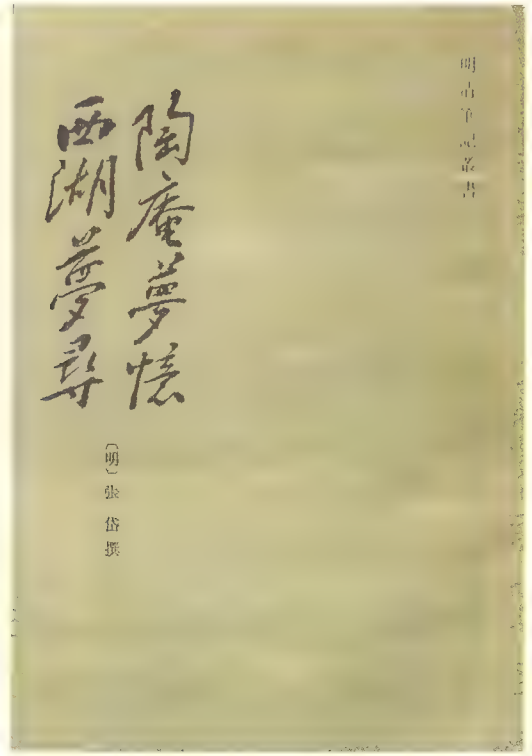 明清筆記叢書
陶庵夢憶
西湖夢尋
〔明〕張岱撰